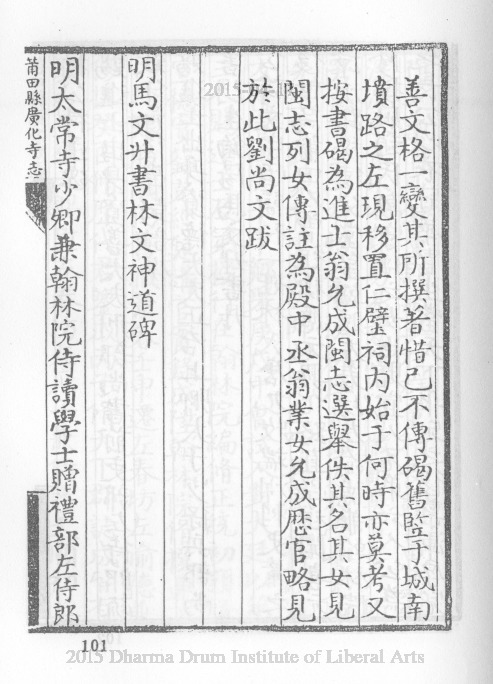 善文格一變其所撰著惜已不傳碣舊竪于城南
墳路之左現移置仁壁祠内始于何時亦莫考又
按書碣為進士翁允成閩志選舉佚其名其女見
閩志列女傳註為殿中丞翁業女允成歴官略見
於此劉尚文跋
明馬文升書林文神道碑
明太常寺少卿兼翰林院侍讀學士贈禮部左侍郎
莆田縣廣化寺志
101
2015 Dharma Drum Institute of Liberal Arts